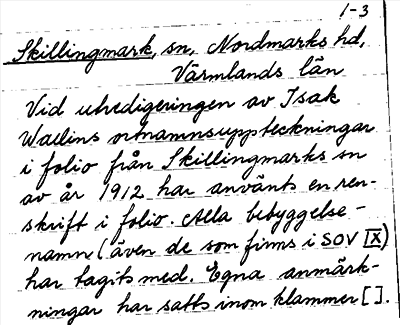 1-3
Skillingmark, sn, Nordmarks hd,
Värmlands län
Vid utredigeringen av Isak
Wallins ortnamnsuppteckningar
i folio från Skillingmarks sn
av år 1912 har använts en ren-
skrift i folio. Alla bebyggelse-
namn (även de som finns i SOV [X])
har tagits med. Egna anmärk-
ningar har satts inom klammer [ ].